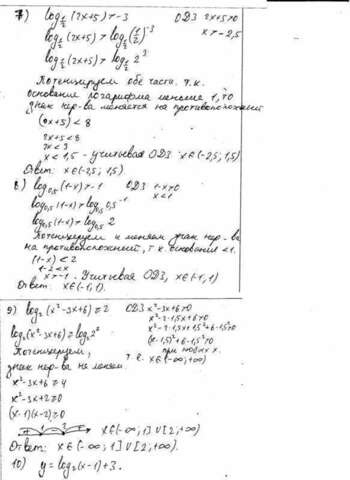 7) log_{1/2} (2x+5) > -3 ОДЗ 2x+5>0
log_{1/2} (2x+5) > log_{1/2} (1/2)^{-3} x > -2,5
log_{1/2} (2x+5) > log_{1/2} 2^3
Потенцируем обе части. т.к.
основание логарифма меньше 1, то
знак нер-ва меняется на противоположный
(2x+5) < 8
2x+5 < 8
2x < 3
x < 1,5 - учитывая ОДЗ x∈(-2,5; 1,5)
Ответ: x∈(-2,5; 1,5).
8) log_{0,5} (1-x) > -1 ОДЗ 1-x>0
x<1
log_{0,5} (1-x) > log_{0,5} 0,5^{-1}
log_{0,5} (1-x) > log_{0,5} 2
Потенцируем и меняем знак нер-ва
на противоположный, т.к. основание <1.
(1-x) < 2
1-2 < x
x > -1. Учитывая ОДЗ, x∈(-1; 1)
Ответ: x∈(-1; 1).
9) log_2 (x²-3x+6) ≥ 2 ОДЗ x²-3x+6>0
x²-2·1,5x+6>0
log_2 (x²-3x+6) ≥ log_2 2² x²-2·1,5x+1,5²+6-1,5²>0
Потенцируем, (x-1,5)²+6-1,5²>0
при любых x.
знак нер-ва не меняем. т.е. x∈(-∞; +∞)
x²-3x+6 ≥ 4
x²-3x+2 ≥ 0
(x-1)(x-2) ≥ 0
x∈(-∞; 1]∪[2; +∞)
Ответ: x∈(-∞; 1]∪[2; +∞).
10) y = log_2 (x-1) + 3.